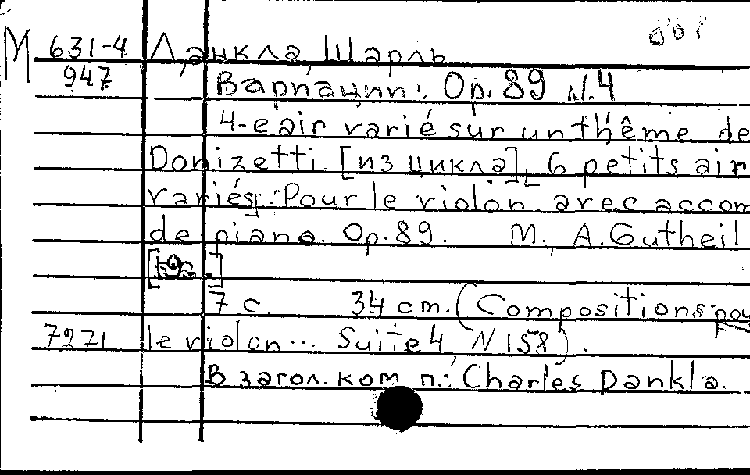 М 631-4 Данкла, Шарль
947 Вариации. Op. 89 N. 4
4-e air varié sur un thême de
Donizetti. [из цикла], 6 petits air
variés. Pour le violon avec accom
de piano. Op. 89. М. A. Gutheil
7 с. 34 cm. (Compositions pou
7271 le violon... Suite 4, N 158).
В загол. ком п.: Charles Dankla.